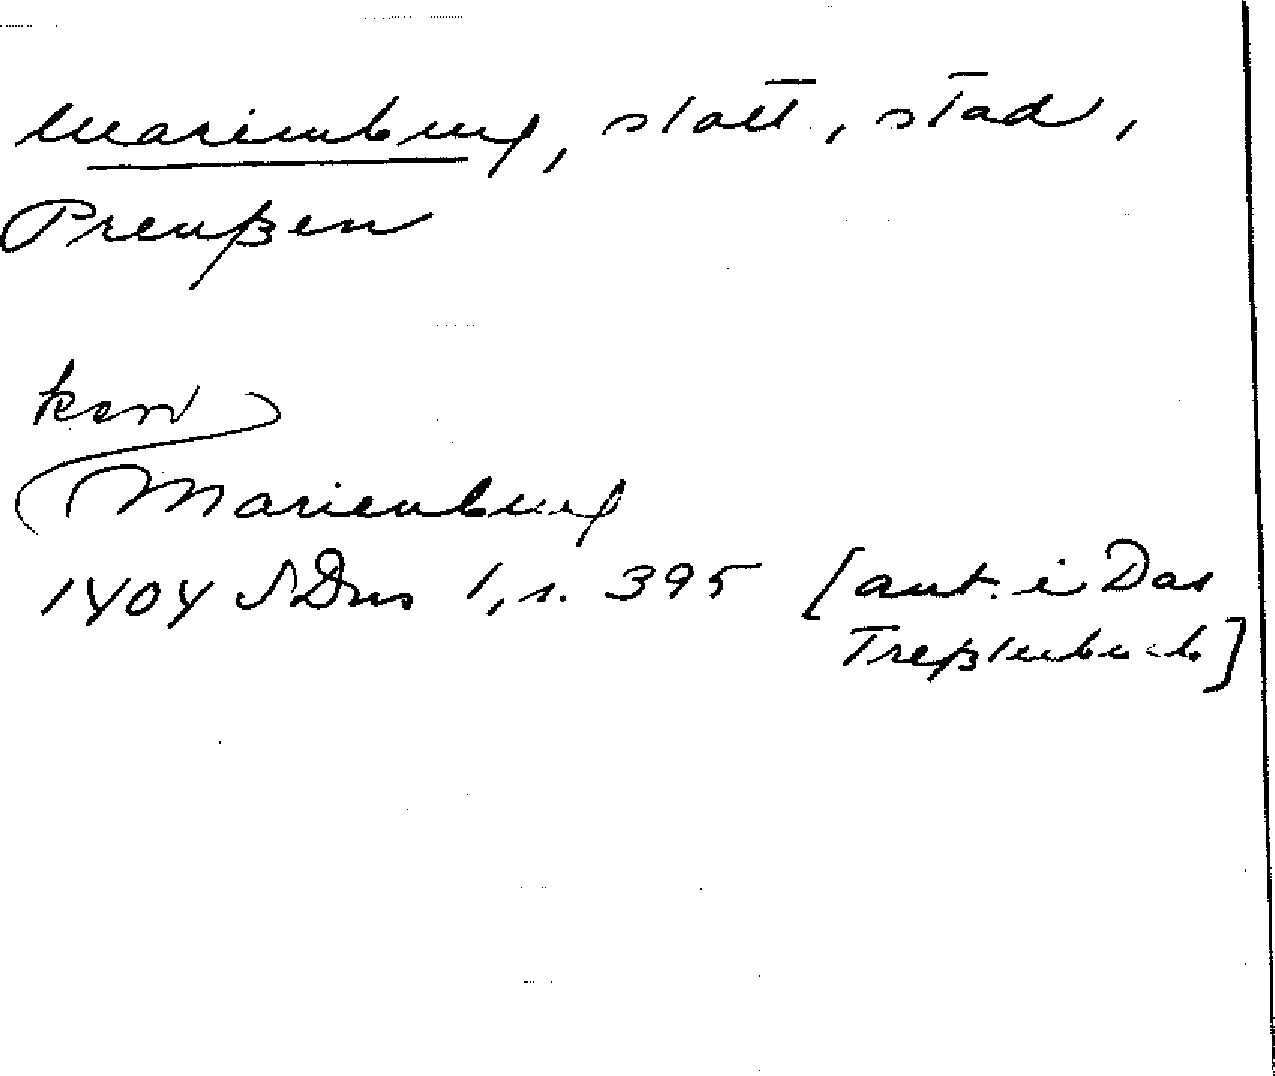 Marienburg, slott, stad,
Preußen
Marienburg
1404 SDns 1, s. 395 [ant. i Das
Treßlerbuch]